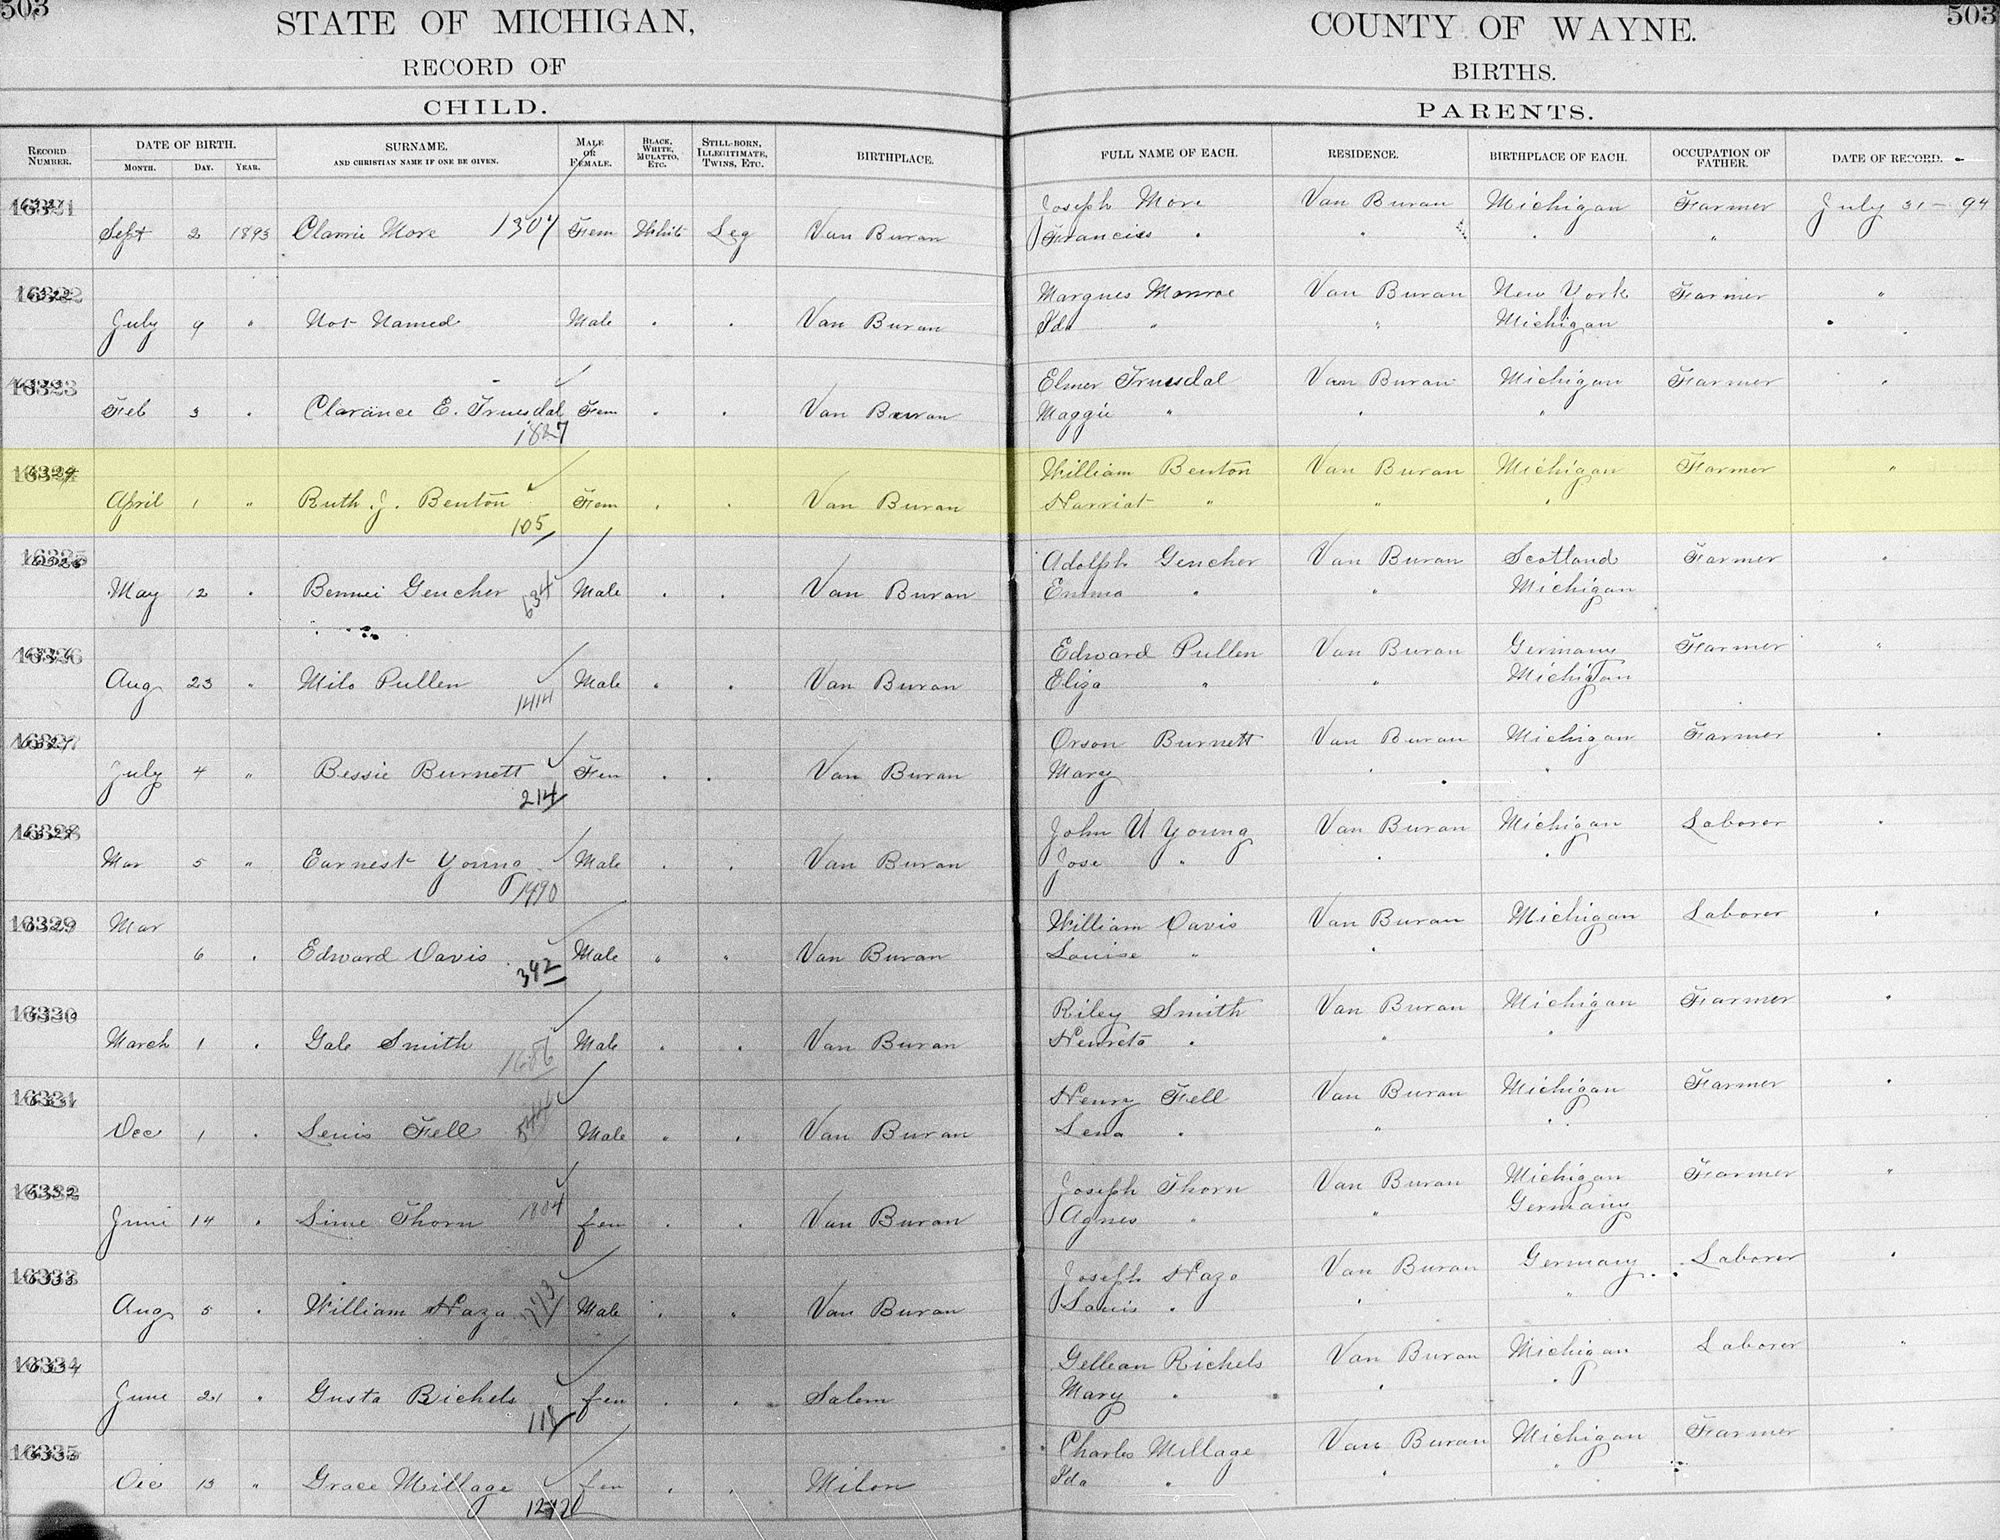 503 503
STATE OF MICHIGAN, COUNTY OF WAYNE.
RECORD OF BIRTHS.
CHILD. PARENTS.
RECORD NUMBER. DATE OF BIRTH. MONTH. DAY. YEAR. SURNAME, AND CHRISTIAN NAME IF ONE BE GIVEN. MALE OR FEMALE. BLACK, WHITE, MULATTO, ETC. STILL-BORN, ILLEGITIMATE, TWINS, ETC. BIRTHPLACE. FULL NAME OF EACH. RESIDENCE. BIRTHPLACE OF EACH. OCCUPATION OF FATHER. DATE OF RECORD.
16321 Joseph More Van Buran Michigan Farmer July 31 - 94
Sept 2 1893 Clarrie More 1307 Fem White Leg Van Buran Francies " " " "
16322 Marques Monroe Van Buran New York Farmer "
July 9 " Not Named Male " " Van Buran Ida " " Michigan
16323 Elmer Truesdal Van Buran Michigan Farmer "
Feb 3 " Clarance E. Truesdal Fem " " Van Buran Maggie " " "
1827
16324 William Benton Van Buran Michigan Farmer "
April 1 " Ruth J. Benton Fem " " Van Buran Harriat " " "
105
16325 Adolph Gencher Van Buran Scotland Farmer "
May 12 " Bennei Gencher 634 Male " " Van Buran Emma " " Michigan
16326 Edward Pullen Van Buran Germany Farmer "
Aug 23 " Milo Pullen Male " " Van Buran Eliza " " Michigan
1414
16327 Orson Burnett Van Buran Michigan Farmer "
July 4 " Bessie Burnett Fem " " Van Buran Mary " "
214
16328 John U Young Van Buran Michigan Laborer "
Mar 5 " Earnest Young Male " " Van Buran Jose " " "
1990
16329 Mar William Davis Van Buran Michigan Laborer "
6 " Edward Davis Male " " Van Buran Louise " "
392
16330 Riley Smith Van Buran Michigan Farmer "
March 1 " Gale Smith Male " " Van Buran Henreta " " "
1686
16331 Henry Fell Van Buran Michigan Farmer "
Dec 1 " Lenis Fell 544 Male " " Van Buran Lena " " "
16332 Joseph Thorn Van Buran Michigan Farmer "
June 14 " Sime Thorn 1804 fem " " Van Buran Agnes " " Germany
16333 Joseph Haza Van Buran Germany Laborer "
Aug 5 " William Haza Male " " Van Buran Louis " " "
16334 Gellean Richels Van Buran Michigan Laborer "
June 21 " Gusta Bichels fem " " Salem Mary " " "
118
16335 Charles Millage Van Buran Michigan Farmer "
Dec 13 " Grace Millage fem " " Milon Ida " " "